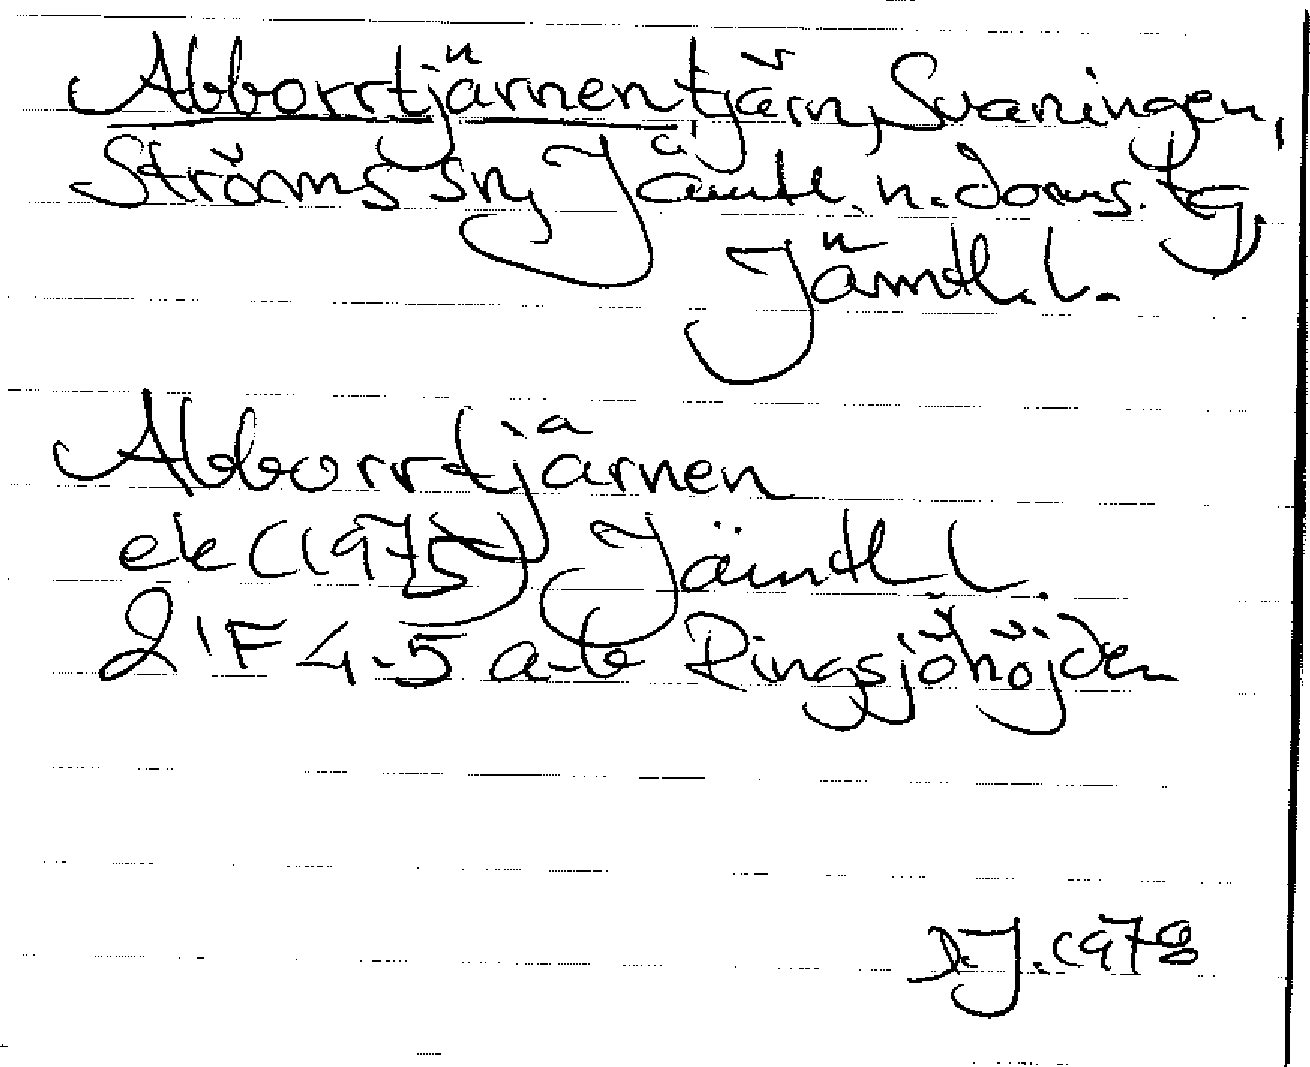 Abborrtjärnen tjärn, Svaningen,
Ströms sn, Jämtl. n. doms. tg,
Jämtl. l.
Abborrtjärnen
ek (1975) Jämtl l.
21F 4-5 a-b Ringsjöhöjden
1978